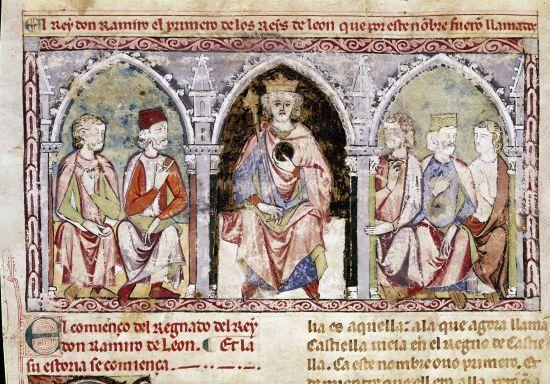 El rey don Ramiro el primero de los reis de leon que por este nõbre fuerõ llamados
El comienço del Regnado del rey
don Ramiro de Leon. Et la
su estoria se comiença
lla es aquella: a la que agora llama
Castiella uieia en el regno de Caste
lla. Ca este nombre ouo primero. Et